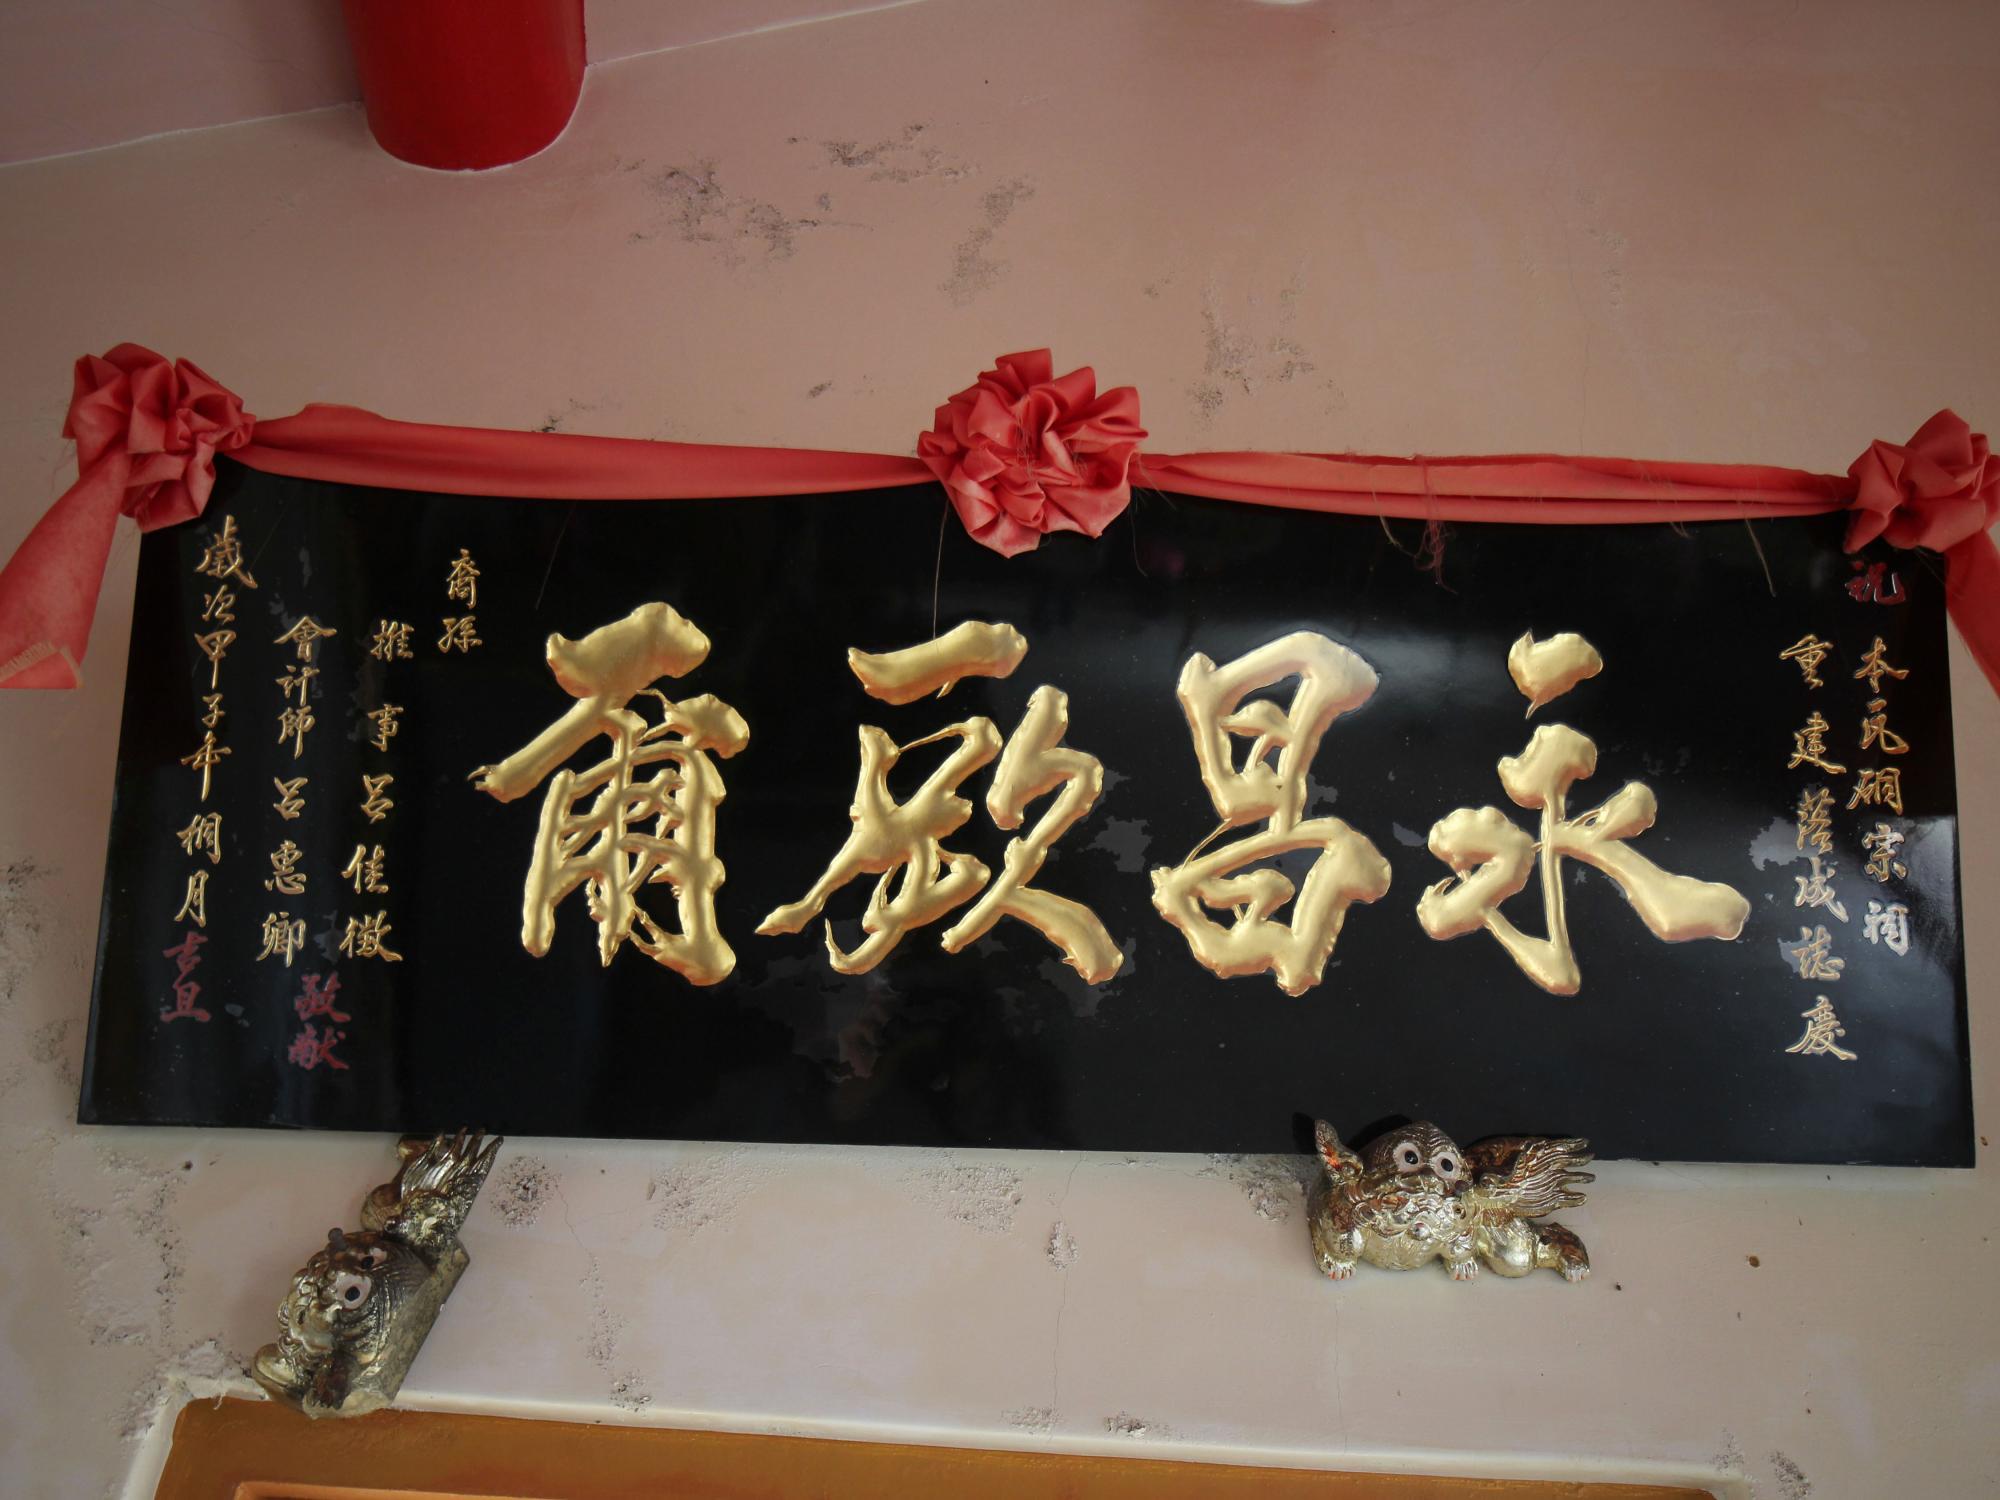 祝
本瓦硐宗祠
重建落成誌慶
永昌厥爾
裔孫
推事呂佳徵
會計師呂惠卿
敬献
歲次甲子年桐月吉旦